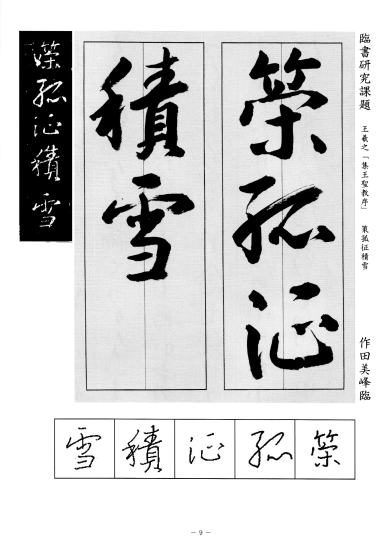 臨書研究課題　王羲之「集王聖教序」　策孤征積雪　作田美峰臨
策孤征
積雪
策孤征積雪
策孤征積雪
－9－